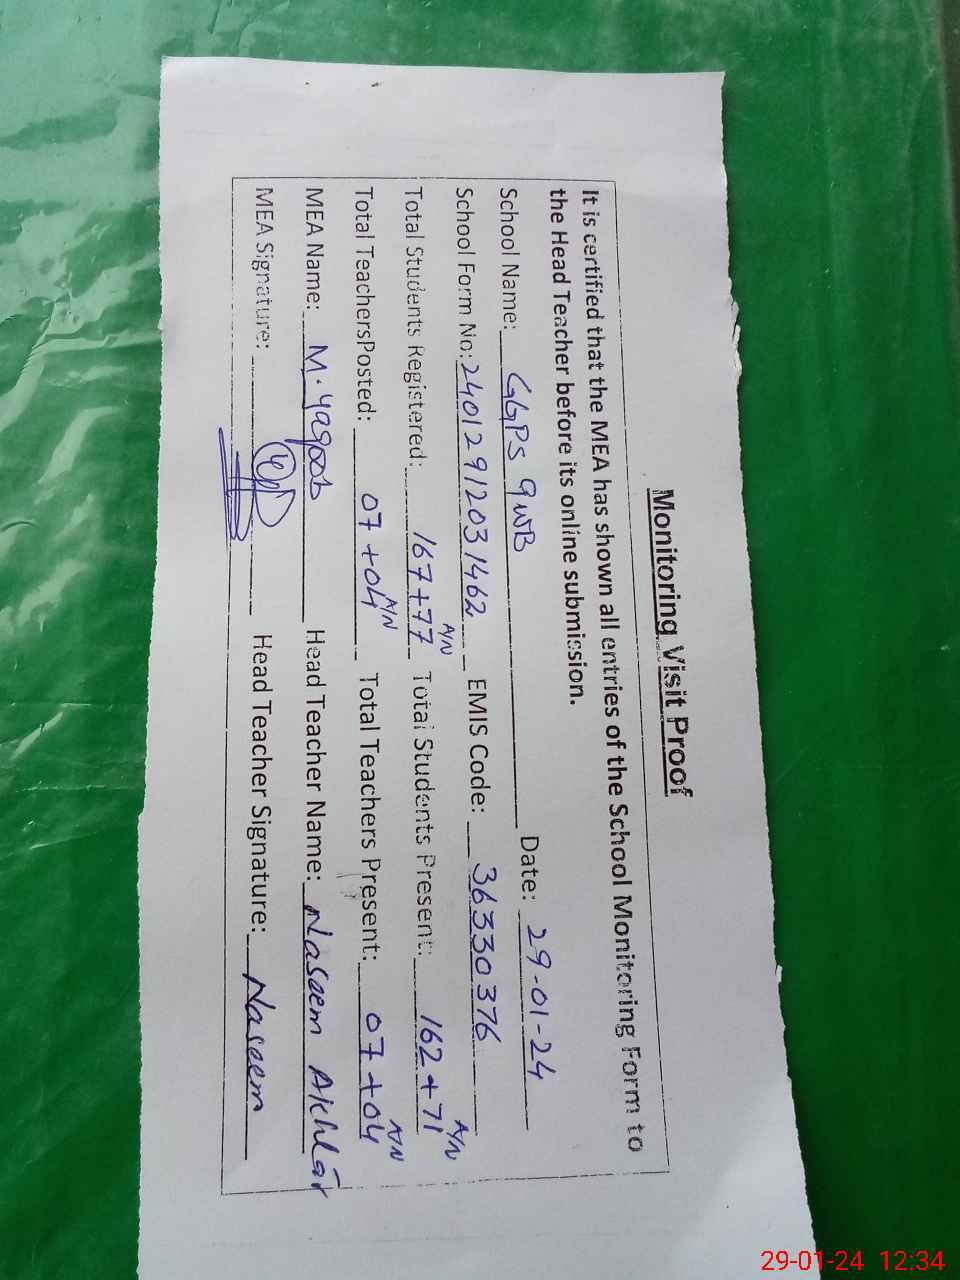 Monitoring Visit Proof
It is certified that the MEA has shown all entries of the School Monitoring Form to
the Head Teacher before its online submission.
School Name: GGPS 9WB Date: 29-01-24
School Form No: 2401291203 1462 EMIS Code: 36330376
Total Students Registered: 167+77 A/N Total Students Present: 162+71 A/N
Total TeachersPosted: 07+04 A/N Total Teachers Present: 07+04 A/N
MEA Name: M. Yaqoob Head Teacher Name: Naseem Akhtar
MEA Signature: Head Teacher Signature: Naseem
29-01-24 12:34